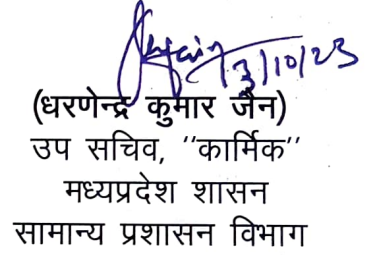 13/10/23
(धरणेन्द्र कुमार जैन)
उप सचिव, ''कार्मिक''
मध्यप्रदेश शासन
सामान्य प्रशासन विभाग